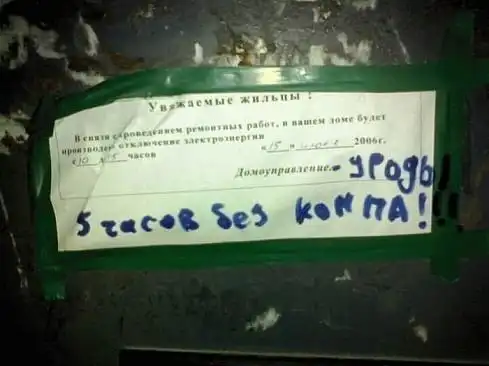 Уважаемые жильцы !
В связи с проведением ремонтных работ, в вашем доме будет
произведено отключение электроэнергии «15» 2006г.
«10 15 часов
Домоуправление. УРОДЫ!
5 часов без КОМПА!!!